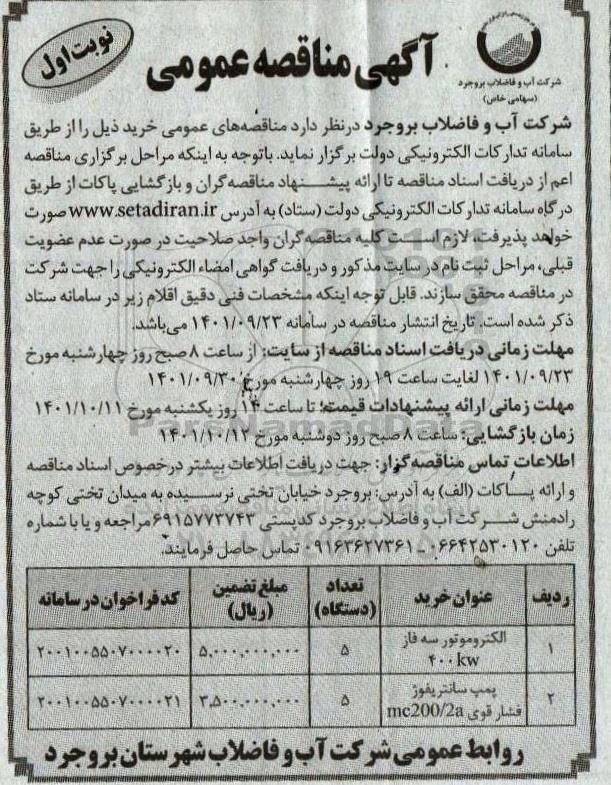 نوبت اول
آگهی مناقصه عمومی
شرکت آب و فاضلاب بروجرد
(سهامی خاص)
شرکت آب و فاضلاب بروجرد درنظر دارد مناقصه‌های عمومی خرید ذیل را از طریق
سامانه تدارکات الکترونیکی دولت برگزار نماید. باتوجه به اینکه مراحل برگزاری مناقصه
اعم از دریافت اسناد مناقصه تا ارائه پیشنهاد مناقصه‌گران و بازگشایی پاکات از طریق
درگاه سامانه تدارکات الکترونیکی دولت (ستاد) به آدرس www.setadiran.ir صورت
خواهد پذیرفت، لازم است کلیه مناقصه‌گران واجد صلاحیت در صورت عدم عضویت
قبلی، مراحل ثبت نام در سایت مذکور و دریافت گواهی امضاء الکترونیکی را جهت شرکت
در مناقصه محقق سازند. قابل توجه اینکه مشخصات فنی دقیق اقلام زیر در سامانه ستاد
ذکر شده است. تاریخ انتشار مناقصه در سامانه ۱۴۰۱/۰۹/۲۳ می‌باشد.
مهلت زمانی دریافت اسناد مناقصه از سایت: از ساعت ۸ صبح روز چهارشنبه مورخ
۱۴۰۱/۰۹/۲۳ لغایت ساعت ۱۹ روز چهارشنبه مورخ ۱۴۰۱/۰۹/۳۰
مهلت زمانی ارائه پیشنهادات قیمت: تا ساعت ۱۴ روز یکشنبه مورخ ۱۴۰۱/۱۰/۱۱
زمان بازگشایی: ساعت ۸ صبح روز دوشنبه مورخ ۱۴۰۱/۱۰/۱۲
اطلاعات تماس مناقصه‌گزار: جهت دریافت اطلاعات بیشتر درخصوص اسناد مناقصه
و ارائه پاکات (الف) به آدرس: بروجرد خیابان تختی نرسیده به میدان تختی کوچه
رادمنش شرکت آب و فاضلاب بروجرد کدپستی ۶۹۱۵۷۷۳۷۴۳ مراجعه و یا با شماره
تلفن ۰۶۶۴۲۵۳۰۱۲۰ - ۰۹۱۶۳۶۲۷۳۶۱ تماس حاصل فرمایند.
ردیف عنوان خرید تعداد (دستگاه) مبلغ تضمین (ریال) کد فراخوان در سامانه
۱ الکتروموتور سه فاز ۴۰۰kw ۵ ۵,۰۰۰,۰۰۰,۰۰۰ ۲۰۰۱۰۰۵۵۰۷۰۰۰۰۲۰
۲ پمپ سانتریفوژ فشار قوی mc200/2a ۵ ۳,۵۰۰,۰۰۰,۰۰۰ ۲۰۰۱۰۰۵۵۰۷۰۰۰۰۲۱
روابط عمومی شرکت آب و فاضلاب شهرستان بروجرد
ParsNamadData